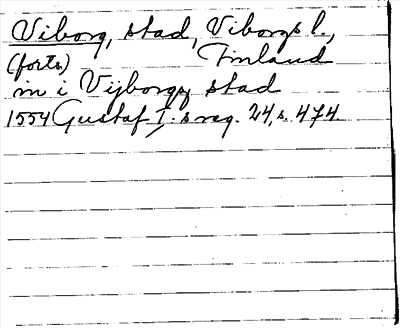 Viborg, stad, Viborgs l.,
(forts) Finland
in i Vijborgz stad
1554 Gustaf I:s reg. 24, s. 474.